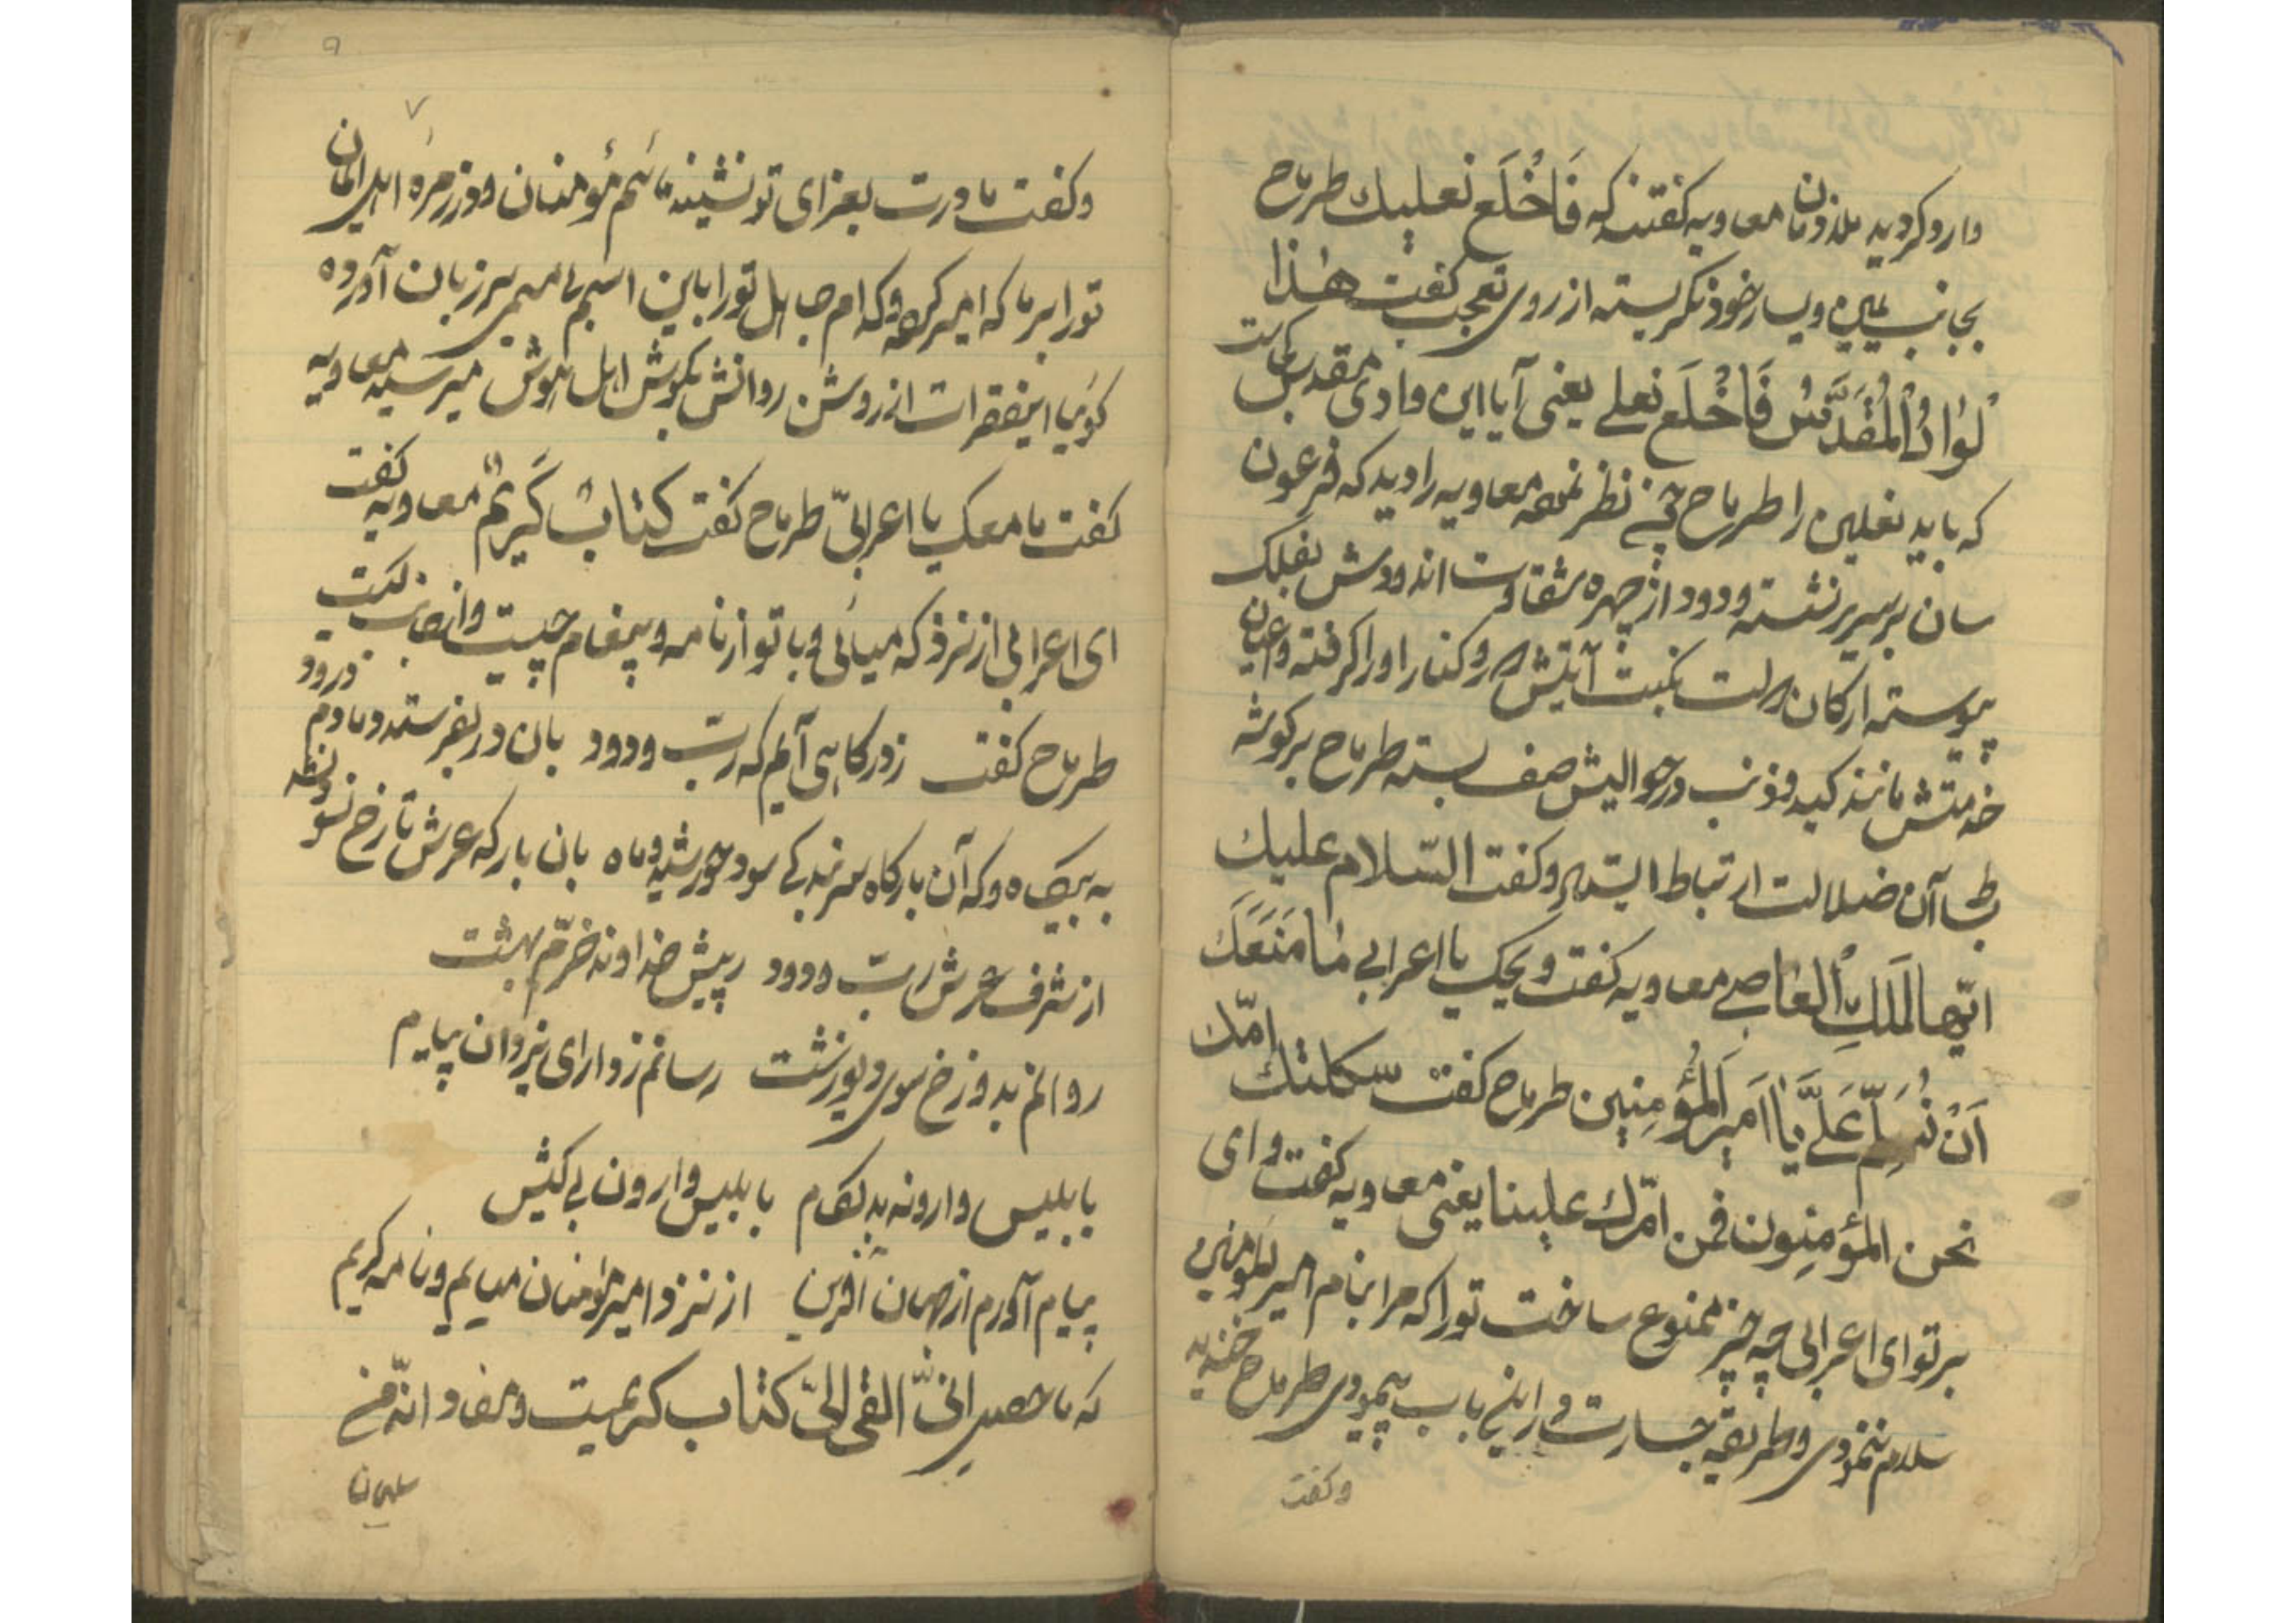 وارد کردید ملازمان معاویه گفتند که فَاخْلَع نعلیك طرماح
بجانب یمین و یسار خود نگریسته از روی تعجب گفت هٰذا
لوٰادُ الْمُقَدَّسُ فَاخْلَع نعلی یعنی آیا این وادی مقدس است
که باید نعلین را طرماح چون نظر نمود معاویه را دید که فرعون
سان بر سریر نشسته و دود از چهره شقاوت اندودش بفلک
پیوسته ارکان دولت نکبت آیتش دور و کنار او را گرفته و اعیان
خدمتش مانند کید و ذنب در حوالیش صف بسته طرماح بر گوشه
بساط آن ضلالت ارتباط ایستاد و گفت السّلام علیك
ایّها المَلَكِ العٰاصی معاویه گفت ویحک یا اعرابی مٰا مَنَعَكَ
اَنْ تُسَلِّم عَلَیَّ یٰا اَمیرَ الْمُؤمِنین طرماح گفت سکلتك امّك
نحن المؤمنون فمن امّرك علینا یعنی معاویه گفت وای
بر تو ای اعرابی چه چیز ممنوع ساخت تو را که مرا بنام امیرالمؤمنین
سلام ننمودی و طریقه جسارت در این باب پیمودی طرماح خندید
وگفت
۹
۷
و گفت مادرت بعزای تو نشیند مائیم مؤمنان و در زمره اهل ایمان
تو را بر ما که امیر کرده و کدام جاهل تو را باین اسم بی مسمی بر زبان آورده
گویا اینفقرات از روشن روانش بگوش اهل هوش میرسید معاویه
گفت ما معک یا اعرابیّ طرماح گفت کتابٌ کَریمٌ معاویه گفت
ای اعرابی از نزد که میائی و با تو از نامه و پیغام چیست و از صاحب کیست
طرماح گفت زدرگاهی آیم که ربّ ودود بان در بفرستد دمادم درود
به پیک ده و که آن بارگاه سر بندگی سود خورشید و ماه بان بارگه عرش تا رخ نسود
از شرف عرش ربّ ودود ز پیش خداوند خرّم بهشت
روانم بدوزخ سوی دیو زشت رسانم ز دارای یزدان پیام
بابلیس وارونه بدلگام بابلیس وارون بی کیش
پیام آورم از جهان آفرین از نزد امیر مؤمنان میایم و نامه کریم
که ماحصل انّی القی الیّ کتاب کریمیت و مفاد انّه من
سلیمان